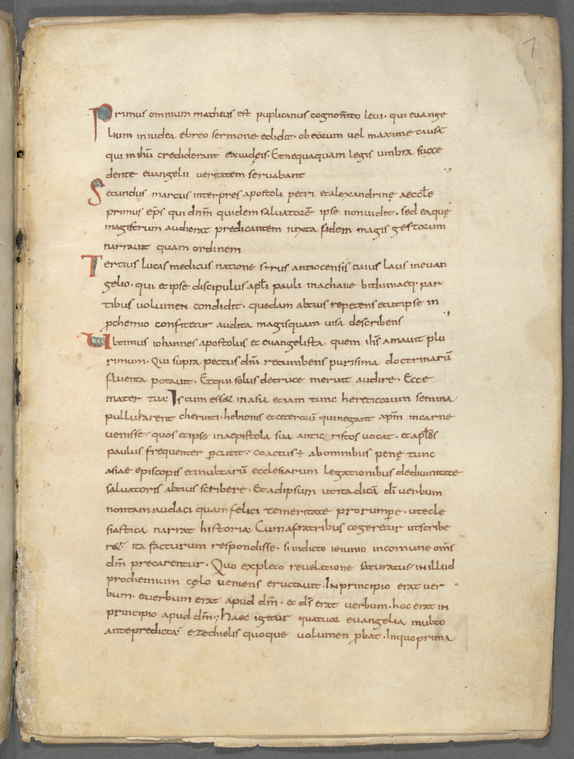 7
Primus omnium matheus est puplicanus cognom̅to leui. qui euange
lium in iudea ebreo sermone edidit. ob eorum uel maxime causã
qui in ihũ crediderant ex iudeis. Et nequaquam legis umbra succe
dente euangelii ueritatem seruabant
Secundus marcus interpres apostoli petri et alexandrinę aeccłe
primus ep̅s qui dnm̅ quidem saluatorẽ ipse non uidit. sed ea que
magistrum audierat predicantem iuxta fidem magis gestorum
narrauit quam ordinem
Tertius lucas medicus natione sirus antiocensis cuius laus in euan
gelio. qui et ipse discipulus apłi pauli in achaiae bithiniaeq; par
tibus uolumen condidit. quedam altius repetens et ut ipse in
p̱hemio confitetur audita magis quam uisa describens
Ultimus iohannes apostolus et euangelista quem ihs̅ amauit plu
rimum. Qui supra pectus dn̅i recumbens purisima doctrinarũ
fluenta potauit. Et qui solus de cruce meruit audire. Ecce
mater tua. Is cum esset in asia et iam tunc hereticorum semina
pullularent cherinti. hebionis et ceterorũ qui negant xp̅m in carne
uenisse. quos et ipse in aepistola sua antic̅ristos uocat. et apłos
paulus frequenter p̱cutit. coactus ÷ ab omnibus penę tunc
asiae episcopis et multarũ ecclesiarum legationibus de diuinitate
saluatoris altius scribere. Et ad ipsum ut ita dicã dī uerbum
non tam audaci quam felici temeritate prorumpe. ut ecle
siastica narrat historia. Cum a fratribus cogeretur ut scribe
ret. ita facturum respondisse. si indicto ieiunio in comune om̅s
dm̅ precarentur. Quo expleto reuelatione saturatus in illud
prochemium cęlo ueniens eructauit. In principio erat uer
bum. et uerbum erat apud dm̅. et ds̅ erat uerbum. hoc erat in
principio apud dm̅; Haec igitur quatuor euangelia multo
ante predicta ezechielis quoque uolumen p̱bat. In quo prima